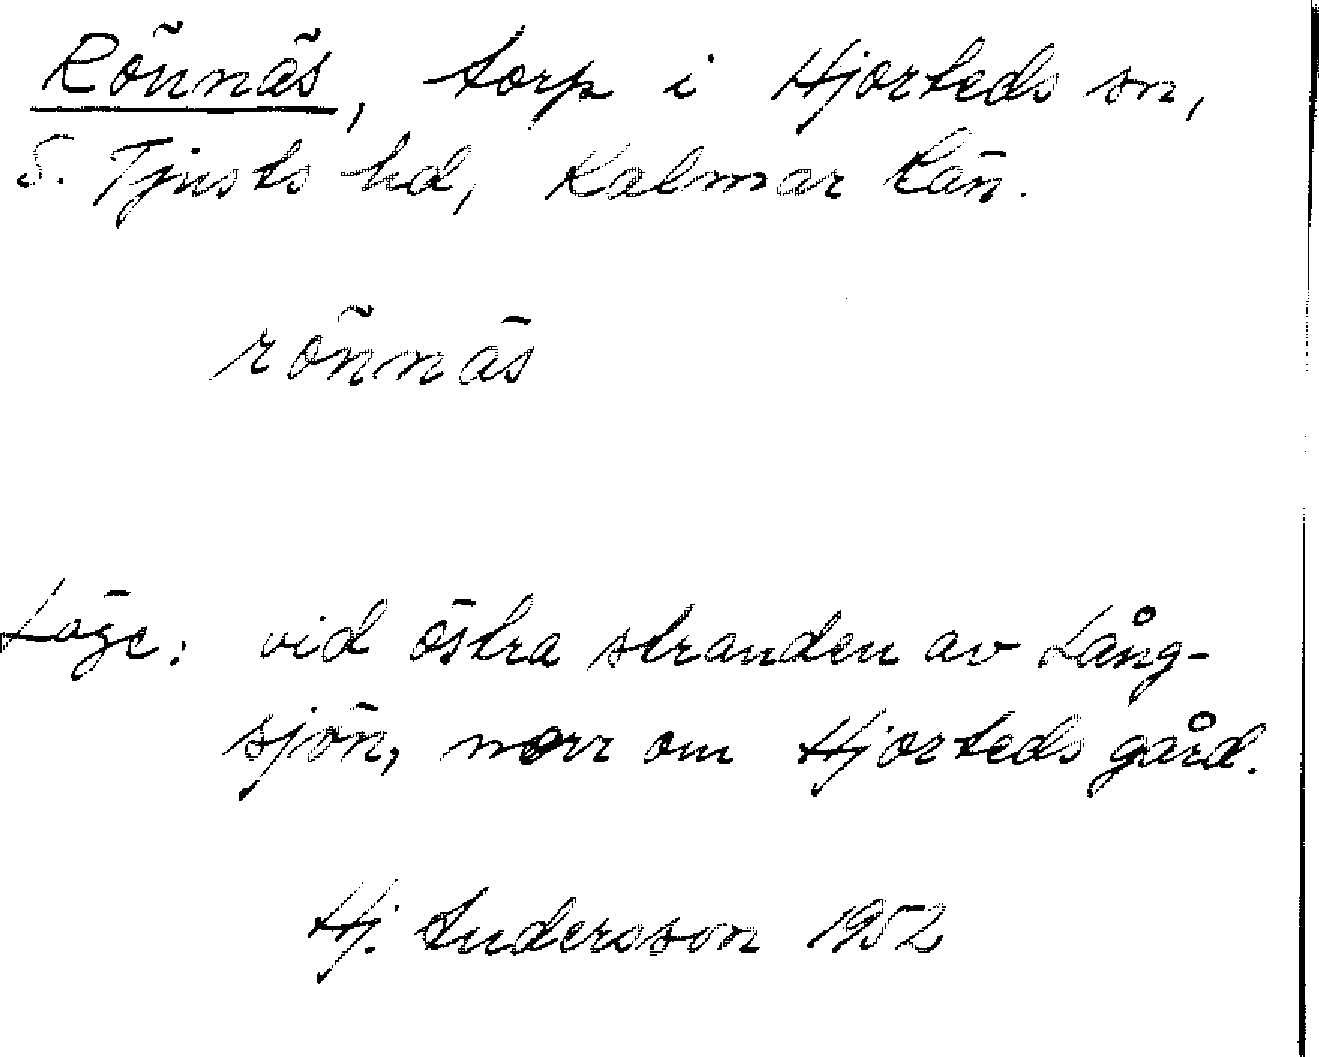 Rönnäs, torp i Hjorteds sn,
S. Tjusts hd, Kalmar län.
rönnäs
Läge: vid östra stranden av Lång-
sjön, norr om Hjorteds gård.
Hj. Andersson 1952